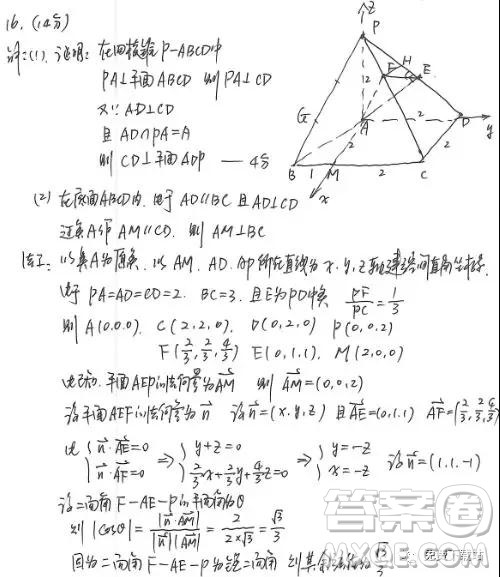 16. (14分)
解:(1). 证明: 在四棱锥P-ABCD中
PA⊥平面ABCD 则PA⊥CD
又∵ AD⊥CD
且 AD∩PA=A
则 CD⊥平面ADP —— 4分
z
P
H
F
E
G
2
A
2
D
y
2
2
B
1
M
2
C
x
(2) 在底面ABCD内, 由于 AD∥BC 且AD⊥CD
过点A作 AM∥CD. 则 AM⊥BC
以点A为原点, 以 AM. AD. AP所在直线为 x. y. z 轴建立空间直角坐标系.
由于 PA=AD=CD=2. BC=3. 且E为PD中点 PF/PC=1/3
则 A(0.0.0). C(2,2,0). D(0,2,0) P(0,0,2)
F(2/3,2/3,4/3) E(0,1,1). M(2,0,0)
平面AEP的法向量为AM 则 AM=(0,0,2)
设平面AEF的法向量为n 设n=(x,y,z) 且AE=(0,1,1) AF=(2/3,2/3,4/3)
{n·AE=0 ⇒ {y+z=0 ⇒ {y=-z
n·AF=0 2/3x+2/3y+4/3z=0 x=-z 设n=(1,1,-1)
设二面角 F-AE-P的平面角为θ
则 |cosθ|=|n·AM|/|n||AM|=2/2×√3=√3/3
因为二面角 F-AE-P为锐二面角 则其余弦值为√3/3
答案圈